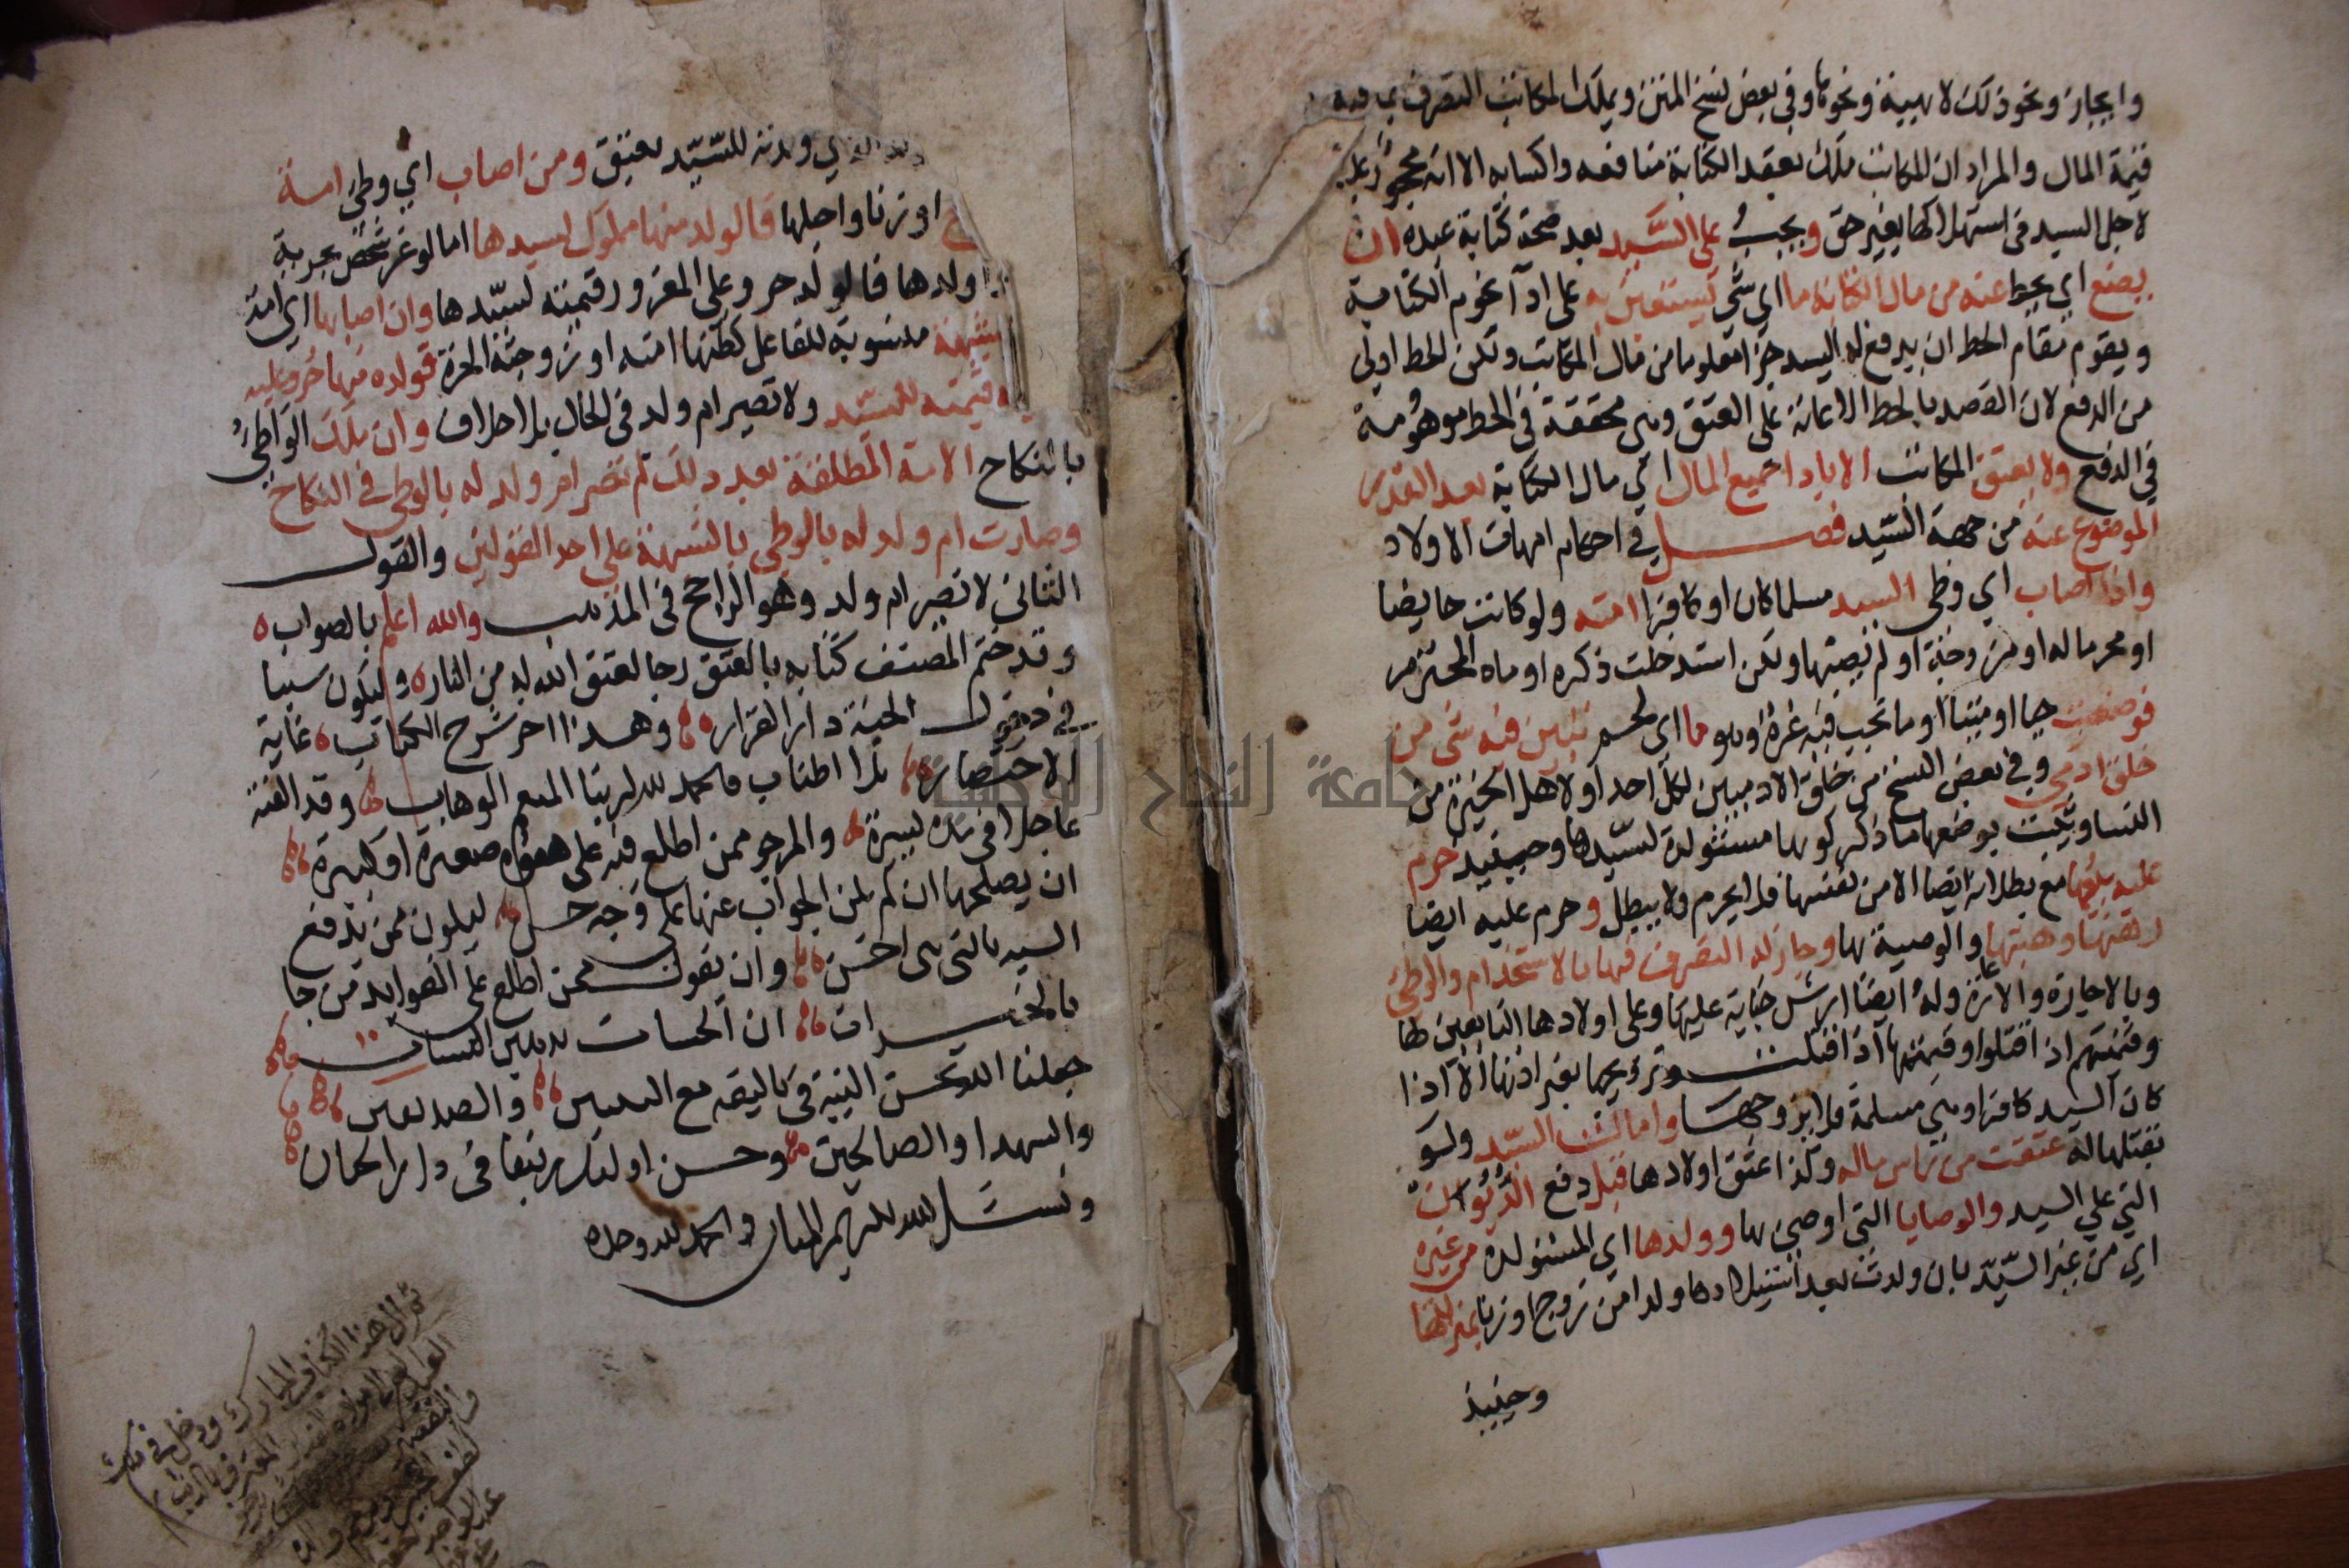 وايجار ونحو ذلك لا بهبة ونحوها وفي بعض نسخ المتن ويملك المكاتب التصرف بما فيه
تنمية المال والمراد ان المكاتب يملك بعقد الكتابة منافعه واكسابه الا انه محجور عليه
لاجل السيد في استهلاكها بغير حق ويجب على السيد بعد صحة كتابة عبده ان
يضع اي يحط عنه من مال الكتابة ما اي شي يستعين به على ادآ نجوم الكتابة
ويقوم مقام الحط ان يدفع له السيد جزا معلوما من مال المكاتب ولكن الحط اولى
من الدفع لان القصد بالحط الاعانة على العتق وهي محققة في الحط موهومة
في الدفع ولا يعتق المكاتب الا باداء جميع المال اي مال الكتابة بعد القدر
الموضوع عنه من جهة السيد فصل في احكام امهات الاولاد
واذا اصاب اي وطي السيد مسلما كان او كافرا امته ولو كانت حايضا
او محرما له او مزوجة او لم يصبها ولكن استدخلت ذكره او ماه المحترم
فوضعت حيا او ميتا او ما تجب فيه غرة وهو ما اي لحم تبين فيه شي من
خلق ادمي وفي بعض النسخ من خلق الادميين لكل احد او لاهل الخبرة من
النسا ويثبت بوضعها ما ذكر كونها مستولدة لسيدها وحينيذ حرم
عليه بيعها مع بطلانه ايضا الا من نفسها فلا يحرم ولا يبطل وحرم عليه ايضا
رهنها وهبتها والوصية بها وجاز له التصرف فيها بالاستخدام والوطي
وبالاجارة والاعارة وله ايضا ارش جناية عليها وعلى اولادها التابعين لها
وقيمتهم اذا قتلوا وقيمتها اذا قتلت وتزويجها بغير اذنها الا اذا
كان السيد كافرا وهي مسلمة فلا يزوجها واذا مات السيد ولو
بقتلها له عتقت من راس ماله وكذا عتق اولادها قبل دفع الديون
التي على السيد والوصايا التي اوصى بها وولدها اي المستولدة من غيره
اي من غير السيد بان ولدت بعد استيلادها ولدا من زوج او زنا بمنزلتها
وحينيذ
الذي ولدته للسيد يعتق ومن اصاب اي وطي امة
او زنا واحبلها فالولد منها مملوك لسيدها اما لو غر شخص بحرية
اولدها فالولد حر وعلى المغرور قيمته لسيدها وان اصابها اي امة
بشبهة منسوبة للفاعل كظنها امته او زوجته الحرة فولده منها حر وعليه
قيمته للسيد ولا تصير ام ولد في الحال بلا خلاف وان ملك الواطي
بالنكاح الامة المطلقة بعد ذلك لم تصر ام ولد له بالوطي في النكاح
وصارت ام ولد له بالوطي بالشبهة على احد القولين والقول
الثاني لا تصير ام ولد وهو الراجح في المذهب والله اعلم بالصواب
وقد ختم المصنف كتابه بالعتق رجا لعتق الله له من النار وليكون سببا
في دخول الجنة دار القرار وهذا اخر شرح الكتاب غاية
الاختصار بلا اطناب فالحمد لله ربنا المنعم الوهاب وقد الفته
عاجلا في مدة يسيرة والمرجو ممن اطلع فيه على هفوة صغيرة او كبيرة
ان يصلحها ان لم يمكن الجواب عنها على وجه حسن ليكون ممن يدفع
السيه بالتي هي احسن وان يقول ممن اطلع على الفوايد من جا
بالخيرات ان الحسنات يذهبن السيات
جعلنا الله بحسن النية في تاليفه مع النبيين والصديقين
والشهدا والصالحين وحسن اولئك رفيقا في دار الجنان
ونسئل الله الكريم المنان والحمد لله وحده
هذا الكتاب المبارك ودخل في ملك
جامعة النجاح الوطنية